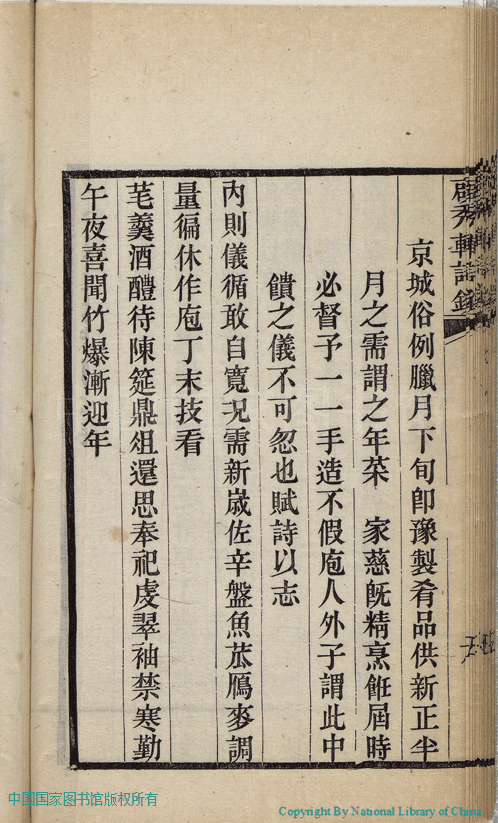 京城俗例臘月下旬卽豫製肴品供新正半
月之需謂之年菜　家慈旣精烹飪屆時
必督予一一手造不假庖人外子謂此中
饋之儀不可忽也賦詩以志
內則儀循敢自寬況需新歲佐辛盤魚菰鴈麥調
量徧休作庖丁末技看
芼羹酒醴待陳筵鼎俎還思奉祀虔翠袖禁寒勤
午夜喜聞竹爆漸迎年
中国国家图书馆版权所有
Copyright By National Library of China